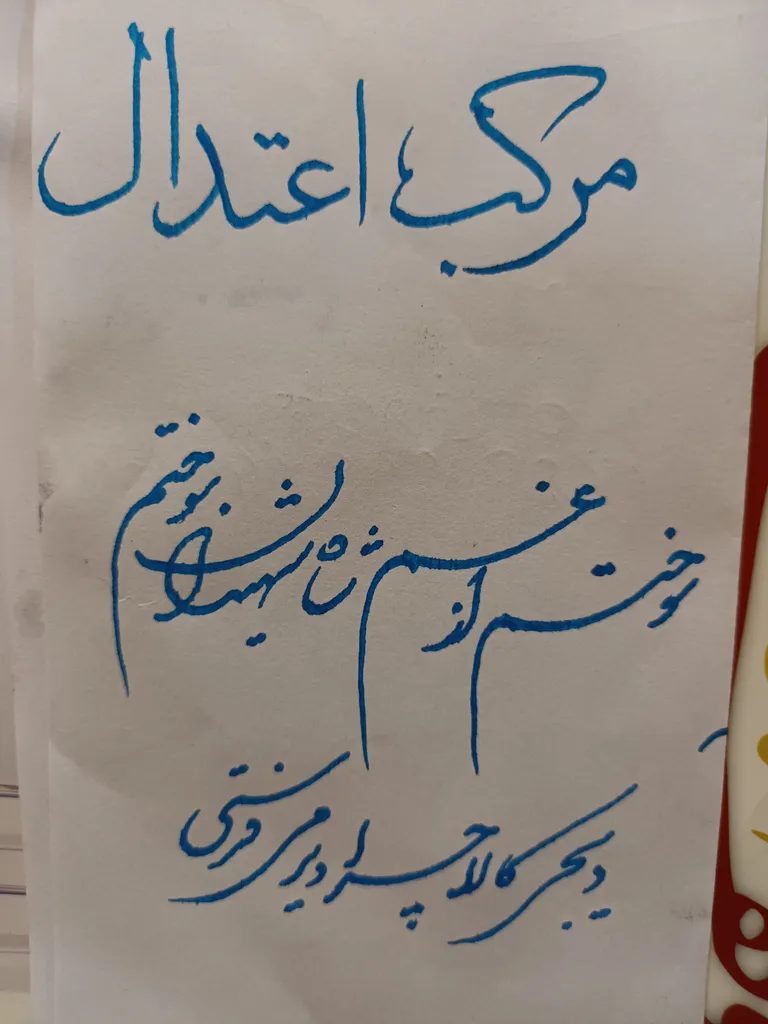 مرکب اعتدال
سوختم از غم شاه شهیدان سوختم
دیجی کالا چرا دیر می فرستی